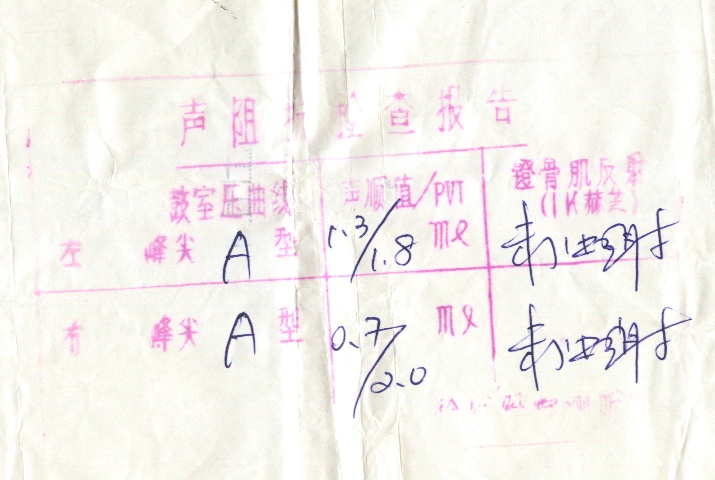 声阻抗检查报告
鼓室压曲线 声顺值/PVT 镫骨肌反射
(1K赫芝)
左 峰尖 A 型 1.3/1.8 ml 未引出反射
右 峰尖 A 型 0.7/2.0 ml 未引出反射